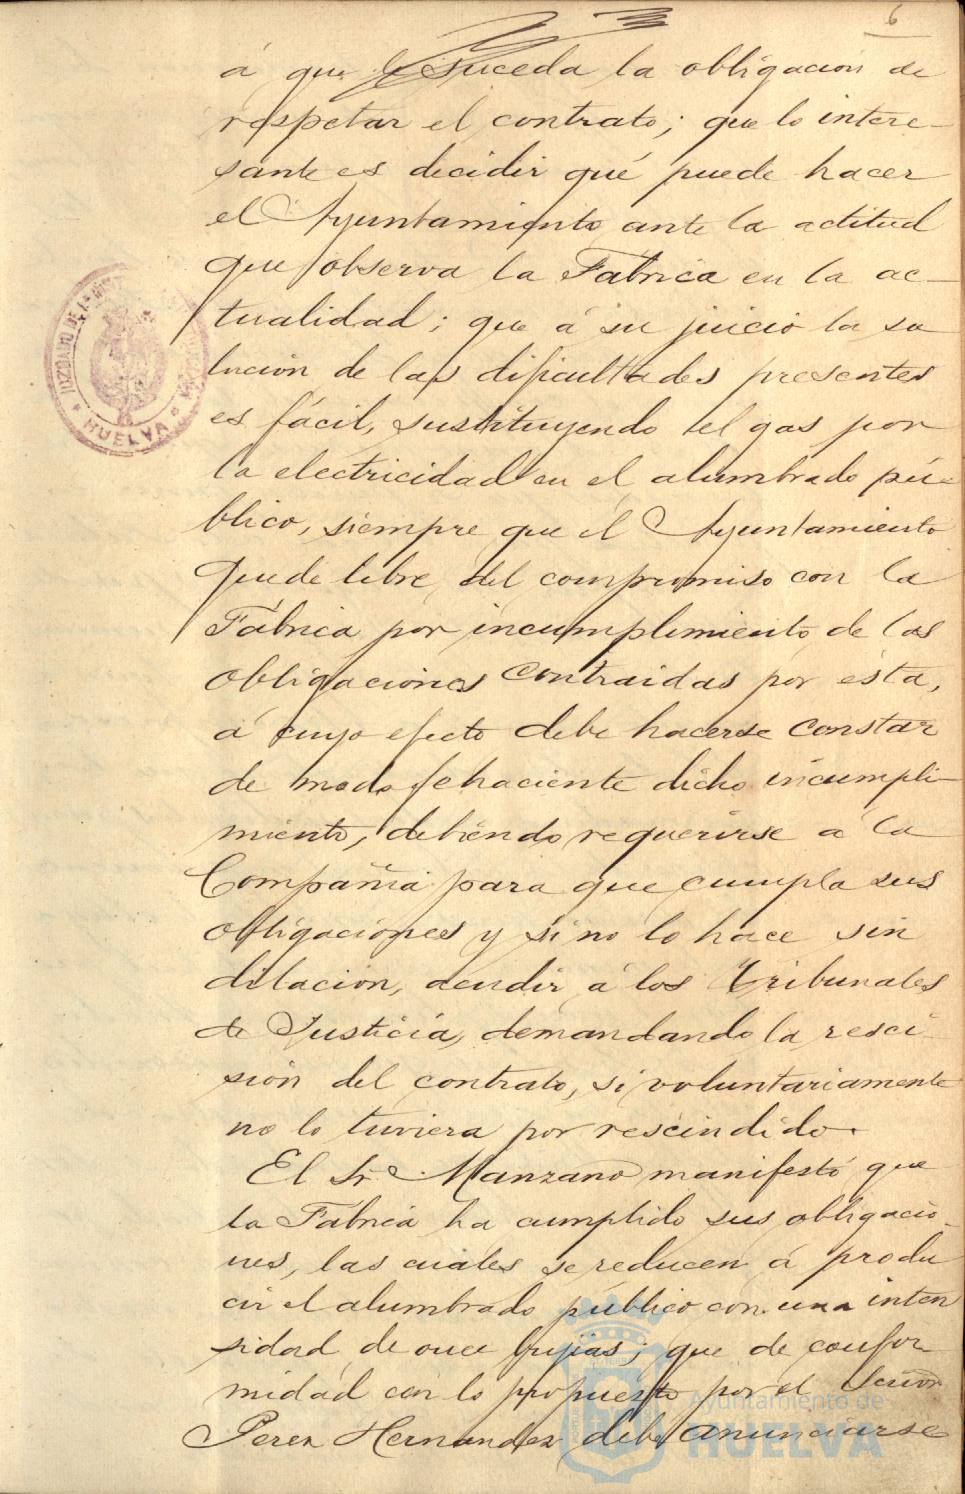 6
á que le suceda la obligacion de
respetar el contrato; que lo intere-
sante es decidir qué puede hacer
el Ayuntamiento ante la actitud
que observa la Fábrica en la ac-
tualidad; que á su juicio la so
lucion de las dificultades presentes
es fácil, sustituyendo el gas por
la electricidad en el alumbrado pú-
blico, siempre que el Ayuntamiento
quede libre del compromiso con la
Fábrica por incumplimiento de las
obligaciones contraidas por ésta,
á cuyo efecto debe hacerse constar
de modo fehaciente dicho incumpli-
miento, debiendo requerirse á la
Compañia para que cumpla sus
obligaciones y si no lo hace sin
dilacion, acudir á los Tribunales
de Justicia, demandando la resci-
sión del contrato, si voluntariamente
no lo tuviera por rescindido.
El Sr. Manzano manifestó que
la Fábrica ha cumplido sus obligacio-
nes, las cuales se reducen á produ
cir el alumbrado público con una inten
sidad de once bujias; que de confor
midad con lo propuesto por el Señor
Perez Hernandez debe anunciarse
JUZGADO DE 1ª
HUELVA
Ayuntamiento de
HUELVA